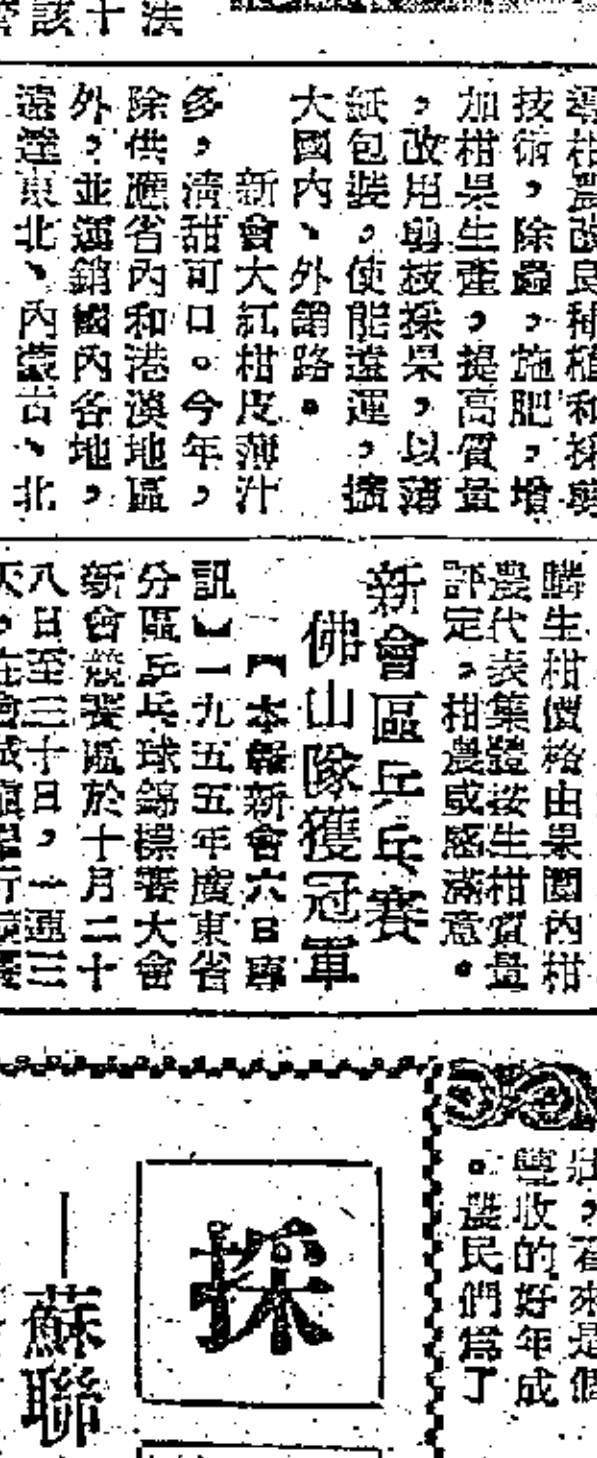 該十法
導柑農改良種植和採剪
技術，除蟲，施肥，增
加柑果生產，提高質量
，改用剪枝採果，以薄
紙包裝，使能遠運，擴
大國內、外銷路。
新會大紅柑皮薄汁
多，清甜可口。今年，
除供應省內和港澳地區
外，並運銷國內各地，
遠達東北、內蒙古、北
購生柑價格由果園內柑
農代表集體按生柑質量
評定。柑農咸感滿意。
新會區乒乓賽
佛山隊獲冠軍
【本報新會六日專
訊】一九五五年廣東省
分區乒乓球錦標賽大會
新會競賽區於十月二十
八日至三十日，一連三
天，在會城鎮舉行競賽
壯，看來是個
豐收的好年成
。農民們爲了
採
—蘇聯